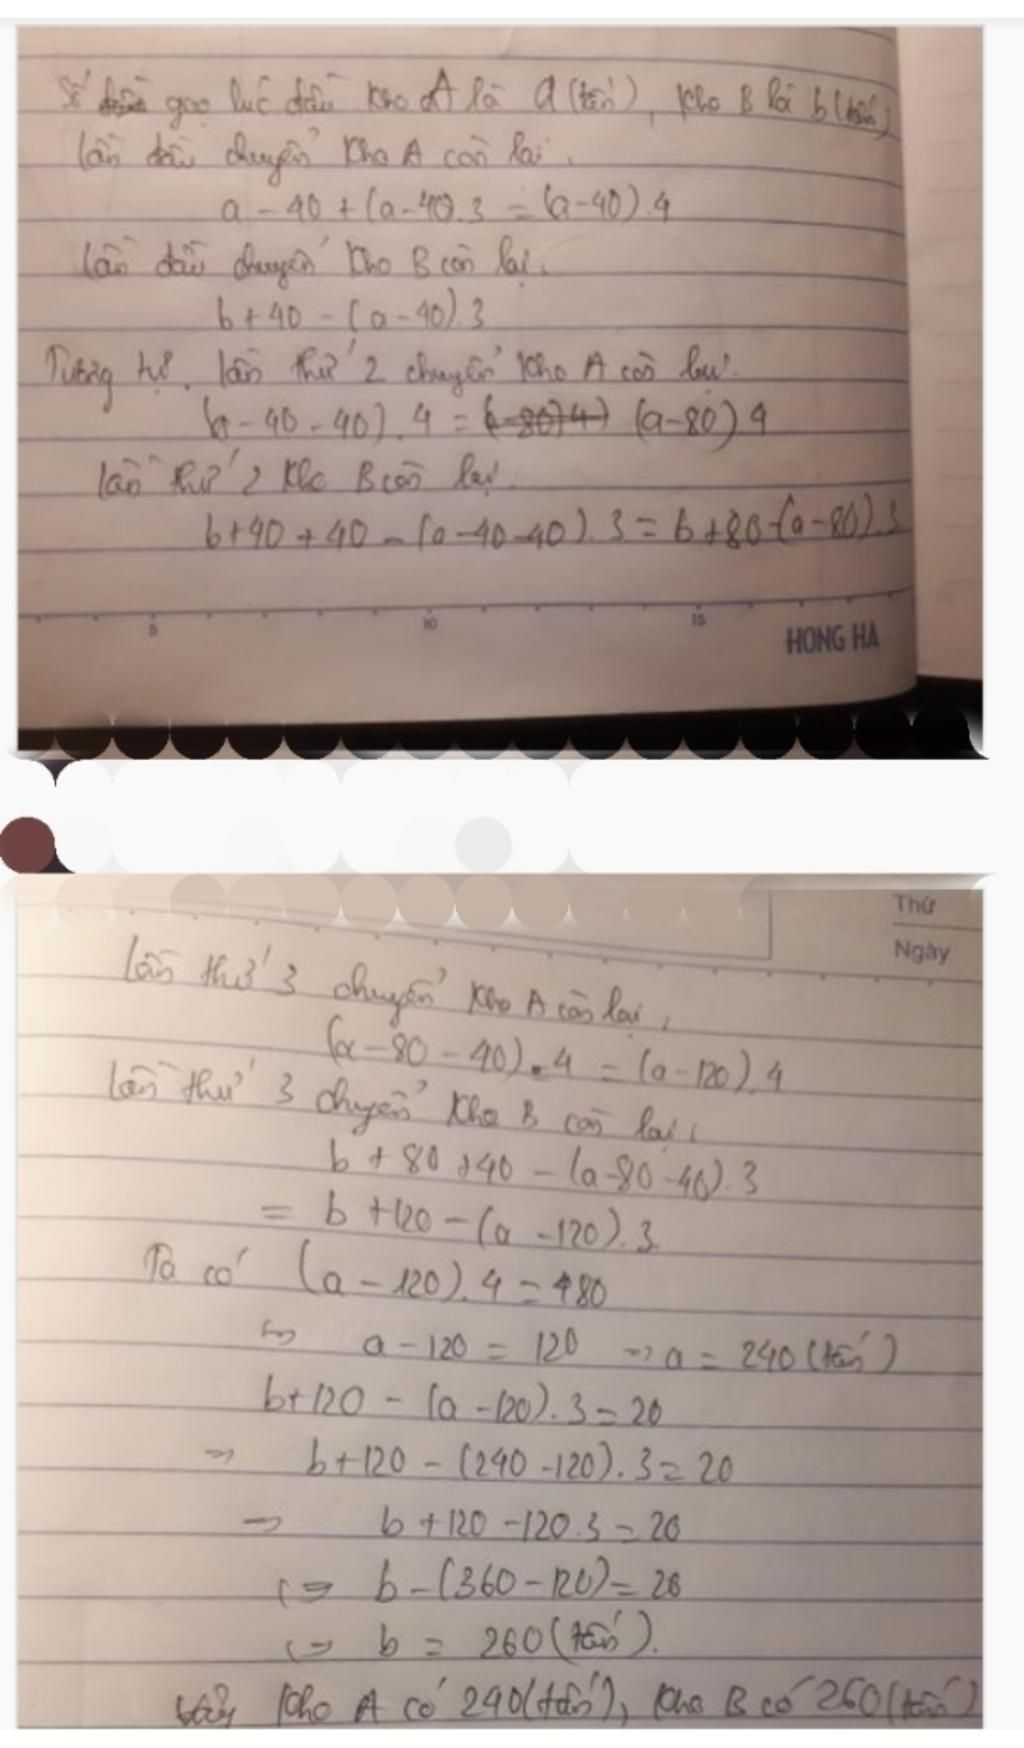 Số gạo lúc đầu kho A là a (tấn), kho B là b (tấn)
lần đầu chuyển kho A còn lại.
a - 40 + (a - 40).3 = (a-40).4
lần đầu chuyển kho B còn lại.
b + 40 - (a - 40).3
Tương tự. lần thứ 2 chuyển kho A còn lại.
(a - 40 - 40).4 = (a-80)4) (a-80)4
lần thứ 2 kho B còn lại.
b+40 + 40 - (a-40-40).3 = b+80-(a-80).3
5 10 15
HONG HA
Thứ
Ngày
lần thứ 3 chuyển kho A còn lại,
(a-80-40).4 = (a-120).4
lần thứ 3 chuyển kho B còn lại,
b + 80 + 40 - (a-80-40).3
= b + 120 - (a - 120).3
Ta có (a - 120).4 = 480
⇔ a - 120 = 120 ⇒ a = 240 (tấn)
b+120 - (a -120).3 = 20
⇒ b+120 - (240 -120).3 = 20
⇒ b +120 -120.3 = 20
⇔ b - (360 - 120) = 20
⇔ b = 260 (tấn).
Vậy kho A có 240 (tấn), kho B có 260 (tấn)